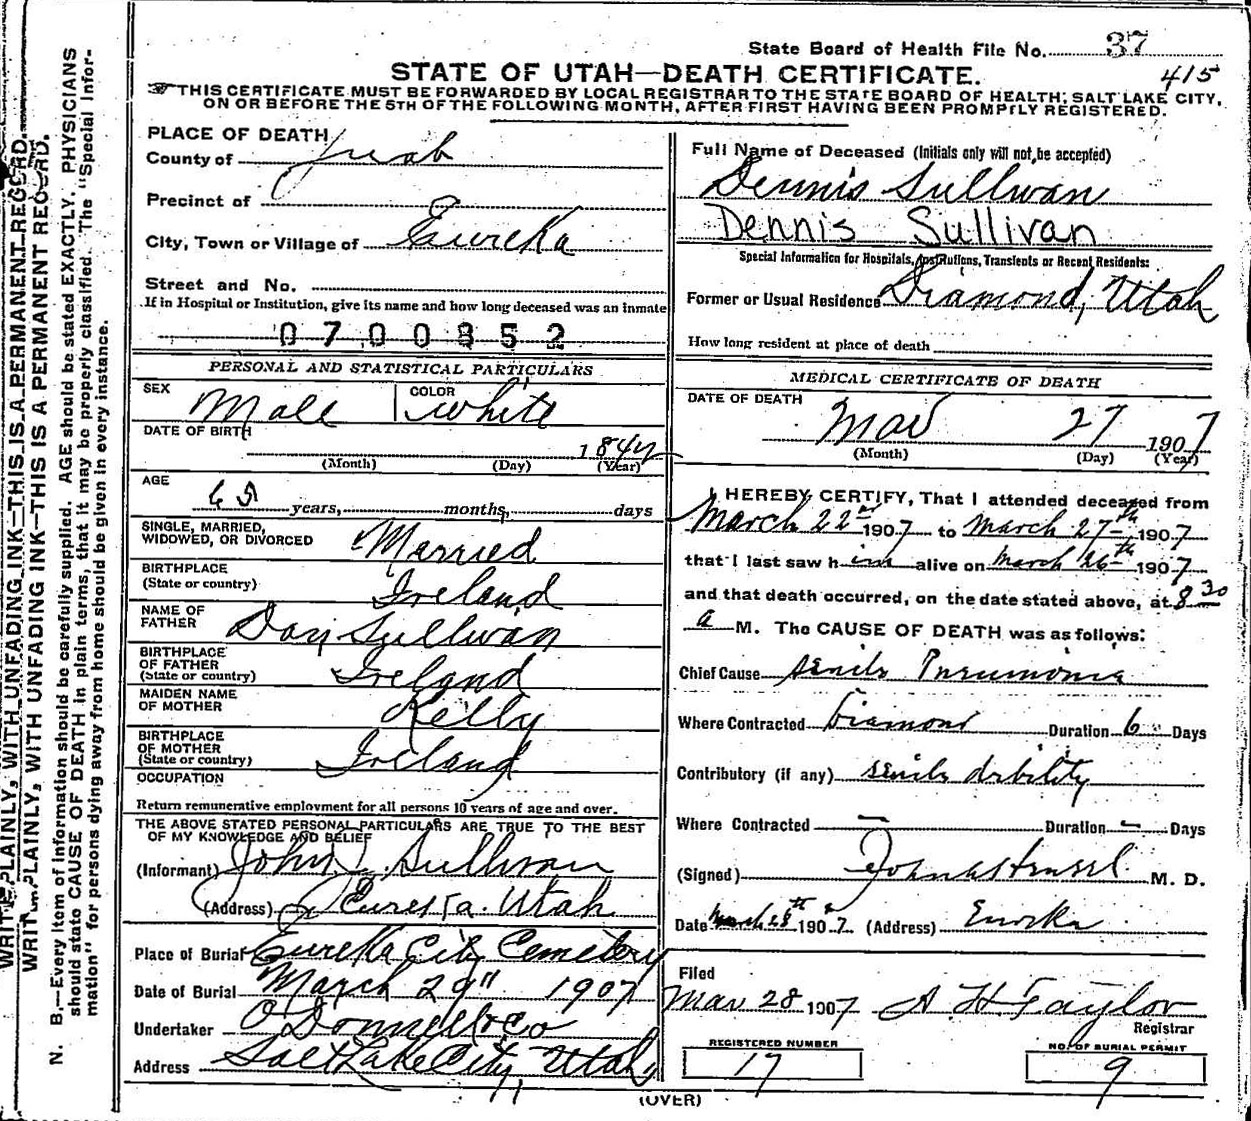 WRITE PLAINLY, WITH UNFADING INK—THIS IS A PERMANENT RECORD.
WRITE PLAINLY, WITH UNFADING INK—THIS IS A PERMANENT RECORD.
N. B.—Every item of information should be carefully supplied. AGE should be stated EXACTLY. PHYSICIANS
should state CAUSE OF DEATH in plain terms, that it may be properly classified. The "Special Infor-
mation" for persons dying away from home should be given in every instance.
State Board of Health File No. 37
415
STATE OF UTAH—DEATH CERTIFICATE.
THIS CERTIFICATE MUST BE FORWARDED BY LOCAL REGISTRAR TO THE STATE BOARD OF HEALTH, SALT LAKE CITY,
ON OR BEFORE THE 5TH OF THE FOLLOWING MONTH, AFTER FIRST HAVING BEEN PROMPTLY REGISTERED.
PLACE OF DEATH
County of Juab
Precinct of
City, Town or Village of Eureka
Street and No.
If in Hospital or Institution, give its name and how long deceased was an inmate
0700852
PERSONAL AND STATISTICAL PARTICULARS
SEX Male COLOR White
DATE OF BIRTH
1842
(Month) (Day) (Year)
AGE 65 years, months, days
SINGLE, MARRIED,
WIDOWED, OR DIVORCED Married
BIRTHPLACE
(State or country) Ireland
NAME OF
FATHER Dan Sullivan
BIRTHPLACE
OF FATHER
(State or country) Ireland
MAIDEN NAME
OF MOTHER Kelly
BIRTHPLACE
OF MOTHER
(State or country) Ireland
OCCUPATION
Return remunerative employment for all persons 10 years of age and over.
THE ABOVE STATED PERSONAL PARTICULARS ARE TRUE TO THE BEST
OF MY KNOWLEDGE AND BELIEF
(Informant) John Sullivan
(Address) Eureka. Utah
Place of Burial Eureka City Cemetery
Date of Burial March 29" 1907
Undertaker O'Donnell & Co
Address Salt Lake City, Utah
Full Name of Deceased (Initials only will not be accepted)
Dennis Sullivan
Dennis Sullivan
Special Information for Hospitals, Institutions, Transients or Recent Residents:
Former or Usual Residence Diamond, Utah
How long resident at place of death
MEDICAL CERTIFICATE OF DEATH
DATE OF DEATH
Mar 27 1907
(Month) (Day) (Year)
I HEREBY CERTIFY, That I attended deceased from
March 22nd 1907 to March 27th 1907
that I last saw him alive on March 26th 1907
and that death occurred, on the date stated above, at 8 30
a M. The CAUSE OF DEATH was as follows:
Chief Cause senile Pneumonia
Where Contracted Diamond Duration 6 Days
Contributory (if any) senile debility
Where Contracted — Duration — Days
(Signed) M. D.
Date March 28th 1907 (Address) Eureka
Filed
Mar 28 1907 A H Taylor
Registrar
REGISTERED NUMBER
17
NO. OF BURIAL PERMIT
9
(OVER)